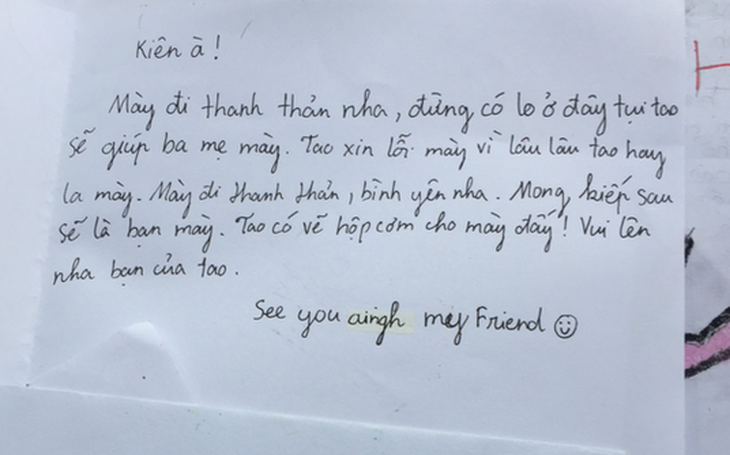 Kiên à!
Mày đi thanh thản nha, đừng có lo ở đây tụi tao
sẽ giúp ba mẹ mày. Tao xin lỗi mày vì lâu lâu tao hay
la mày. Mày đi thanh thản, bình yên nha. Mong kiếp sau
sẽ là bạn mày. Tao có vẽ hộp cơm cho mày đấy! Vui lên
nha bạn của tao.
See you aingh my Friend ☺